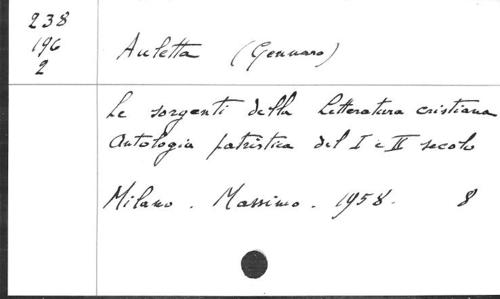 238
196
2
Auletta (Gennaro)
Le sorgenti della letteratura cristiana
Antologia patristica del I e II secolo
Milano. Massimo. 1958. 8